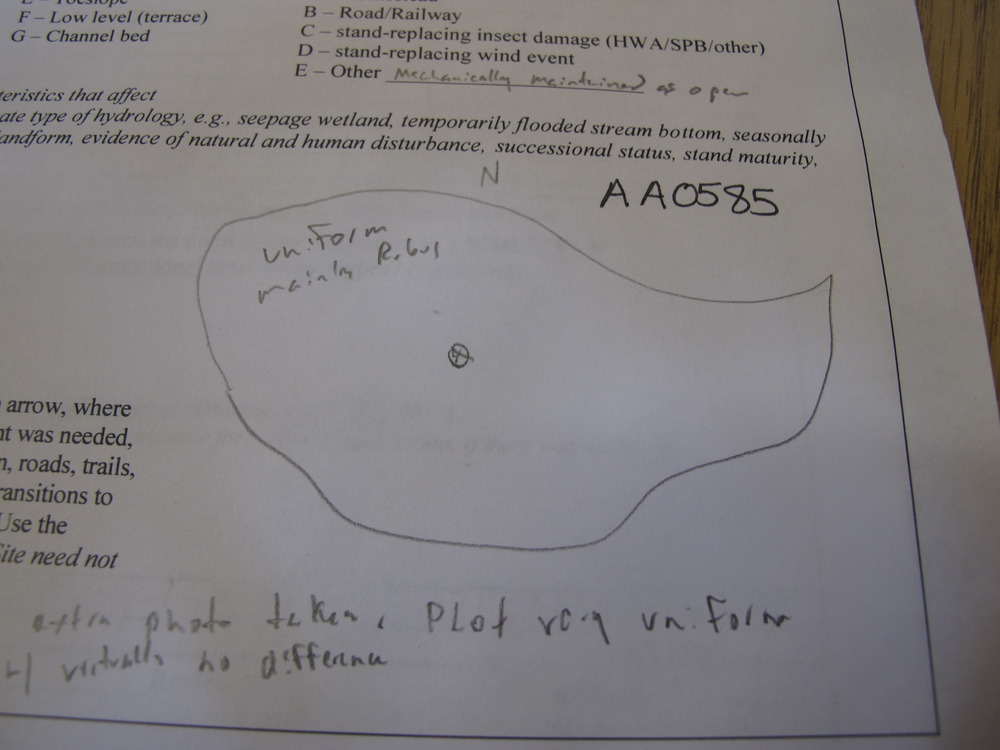 E – Toeslope
F – Low level (terrace)
G – Channel bed
B – Road/Railway
C – stand-replacing insect damage (HWA/SPB/other)
D – stand-replacing wind event
E – Other Mechanically maintained as open
teristics that affect
ate type of hydrology, e.g., seepage wetland, temporarily flooded stream bottom, seasonally
andform, evidence of natural and human disturbance, successional status, stand maturity,
N
AA0585
uniform
mainly Rubus
arrow, where
nt was needed,
n, roads, trails,
ransitions to
Use the
Site need not
extra photo taken, PLot very uniform
w/ virtually no difference